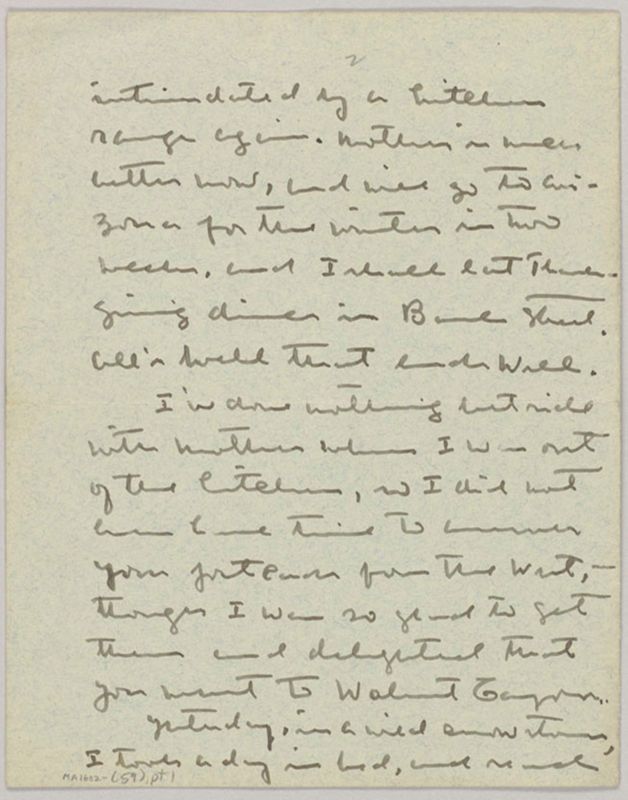 2
intimidated by a kitchen
range again. Mother is much
better now, and will go to Ari-
zona for the winter in two
weeks, and I shall eat Thanks-
giving dinner in Bank Street.
All's well that ends well.
I've done nothing but ride
with mother when I was out
of the kitchen, so I did not
even have time to answer
your postcards from the West,—
though I was so glad to get
them and delighted that
you went to Walnut Canyon.
Yesterday, in a wild snow storm,
I took a day in bed, and read
MA1602-(59), pt. 1